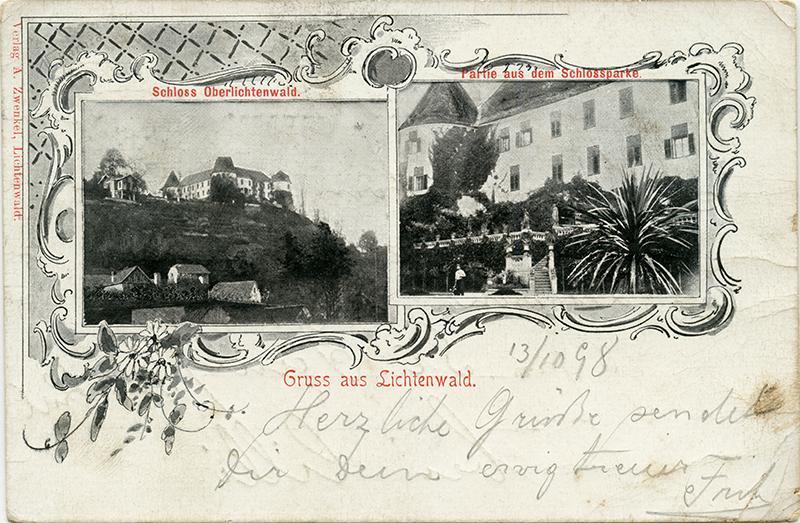 Verlag A. Zwenkel, Lichtenwald.
Schloss Oberlichtenwald.
Partie aus dem Schlossparke.
Gruss aus Lichtenwald.
13/10 98
Herzliche Grüße sendet
Dir Dein ewig treuer